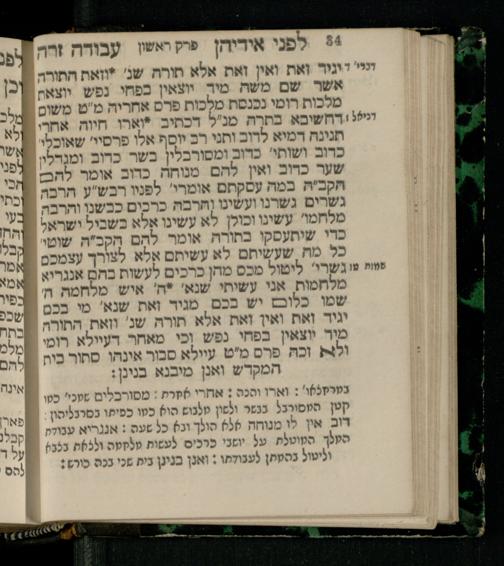 34 לפני אידיהן פרק ראשון עבודה זרה
דברי' ד יגיד זאת ואין זאת אלא תורה שנ' *וזאת התורה
אשר שם משה מיד יוצאין בפחי נפש יוצאת
מלכות רומי נכנסת מלכות פרס אחריה מ"ט משום
דניאל ז דחשיבא בתרה מנ"ל דכתיב *וארו חיוה אחרי
תנינה דמיא לדוב ותני רב יוסף אלו פרסיי' שאוכלי'
כדוב ושותי' כדוב ומסורבלין בשר כדוב ומגדלין
שער כדוב ואין להם מנוחה כדוב אומר להם
הקב"ה במה עסקתם אומרי' לפניו רבש"ע הרבה
גשרים גשרנו ועשינו והרבה כרכים כבשנו והרבה
מלחמו' עשינו וכולן לא עשינו אלא בשביל ישראל
כדי שיתעסקו בתורה אומר להם הקב"ה שוטי'
כל מה שעשיתם לא עשיתם אלא לצורך עצמכם
שמות טו גשרי' ליטול מכם מהן כרכים לעשות בהם אנגריא
מלחמות אני עשיתי שנא' *ה' איש מלחמה ה'
שמו כלום יש בכם מגיד זאת שנא' מי בכם
יגיד זאת ואין זאת אלא תורה שנ' וזאת התורה
מיד יוצאין בפחי נפש וכי מאחר דעיילא רומי
ולא זכה פרס מ"ט עיילא סבור אינהו סתור בית
המקדש ואנן מיבנא בנינן :
וארו והנה : אחרי אחרת : מסורבלים
קטן המסורבל בבשר ולשון מלבוש הוא כמו כפיתו בסרבליהון :
דוב אין לו מנוחה אלא הולך ובא כל שעה : אנגריא עבודת
המלך המוטלת על יושבי כרכים לעשות מלחמה ולצאת בצבא
וליטול בהמתן לעבודתו : ואנן בנינן בית שני בנה כורש :